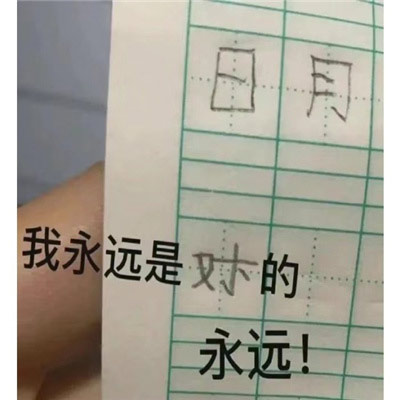 日 月
我永远是对的
永远！